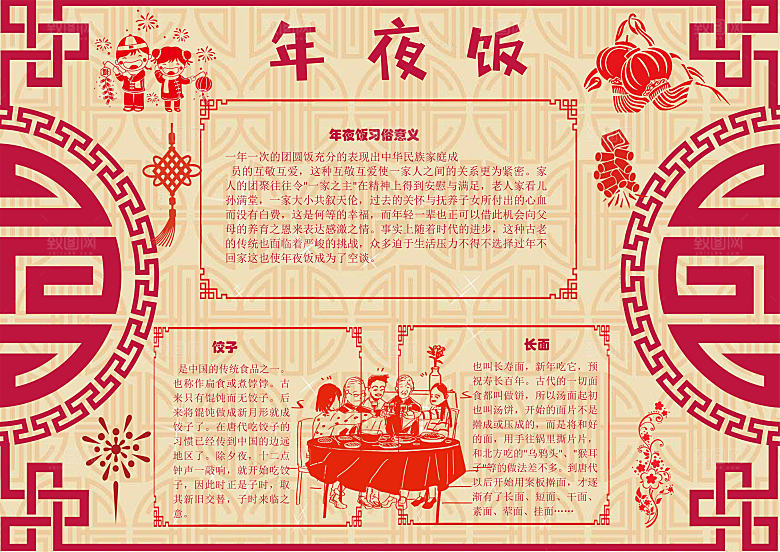 年夜饭
年夜饭习俗意义
一年一次的团圆饭充分的表现出中华民族家庭成
员的互敬互爱，这种互敬互爱使一家人之间的关系更为紧密。家
人的团聚往往令"一家之主"在精神上得到安慰与满足，老人家看儿
孙满堂，一家大小共叙天伦，过去的关怀与抚养子女所付出的心血
而没有白费，这是何等的幸福，而年轻一辈也正可以借此机会向父
母的养育之恩来表达感激之情。事实上随着时代的进步，这种古老
的传统也面临着严峻的挑战，众多迫于生活压力不得不选择过年不
回家这也使年夜饭成为了空谈。
饺子
是中国的传统食品之一。
也称作扁食或煮饽饽。古
来只有馄饨而无饺子。后
来将馄饨做成新月形就成
饺子了。在唐代吃饺子的
习惯已经传到中国的边远
地区了。除夕夜，十二点
钟声一敲响，就开始吃饺
子，因此时正是子时，取
其新旧交替，子时来临之
意。
长面
也叫长寿面，新年吃它，预
祝寿长百年。古代的一切面
食都叫做饼，所以汤面起初
也叫汤饼，开始的面片不是
擀成或压成的，而是将和好
的面，用手往锅里撕片片，
和北方吃的"乌鸦头"、"猴耳
子"等的做法差不多。到唐代
以后开始用案板擀面，才逐
渐有了长面、短面、干面、
素面、荤面、挂面……